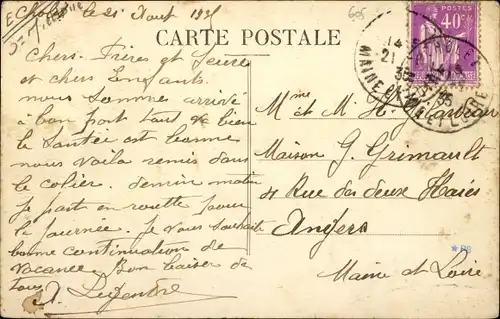 le 21 Aout 1935
605
CARTE POSTALE
POSTES
40c
MAINE
LOIRE
Chers Frères et Seurs
et chers Enfants
nous somme arrivé
à bon port tout va bien
la Santée est bonne
nous voila remis dans
le colier. demin matin
je part en routte pour
la journée. Je vous souhaite
bonne continuation de
vacance Bon baiser de
tous
A. Legendre
Mme et M. H.
Maison G. Grimault
Rue des deux Haies
Angers
Maine et Loire